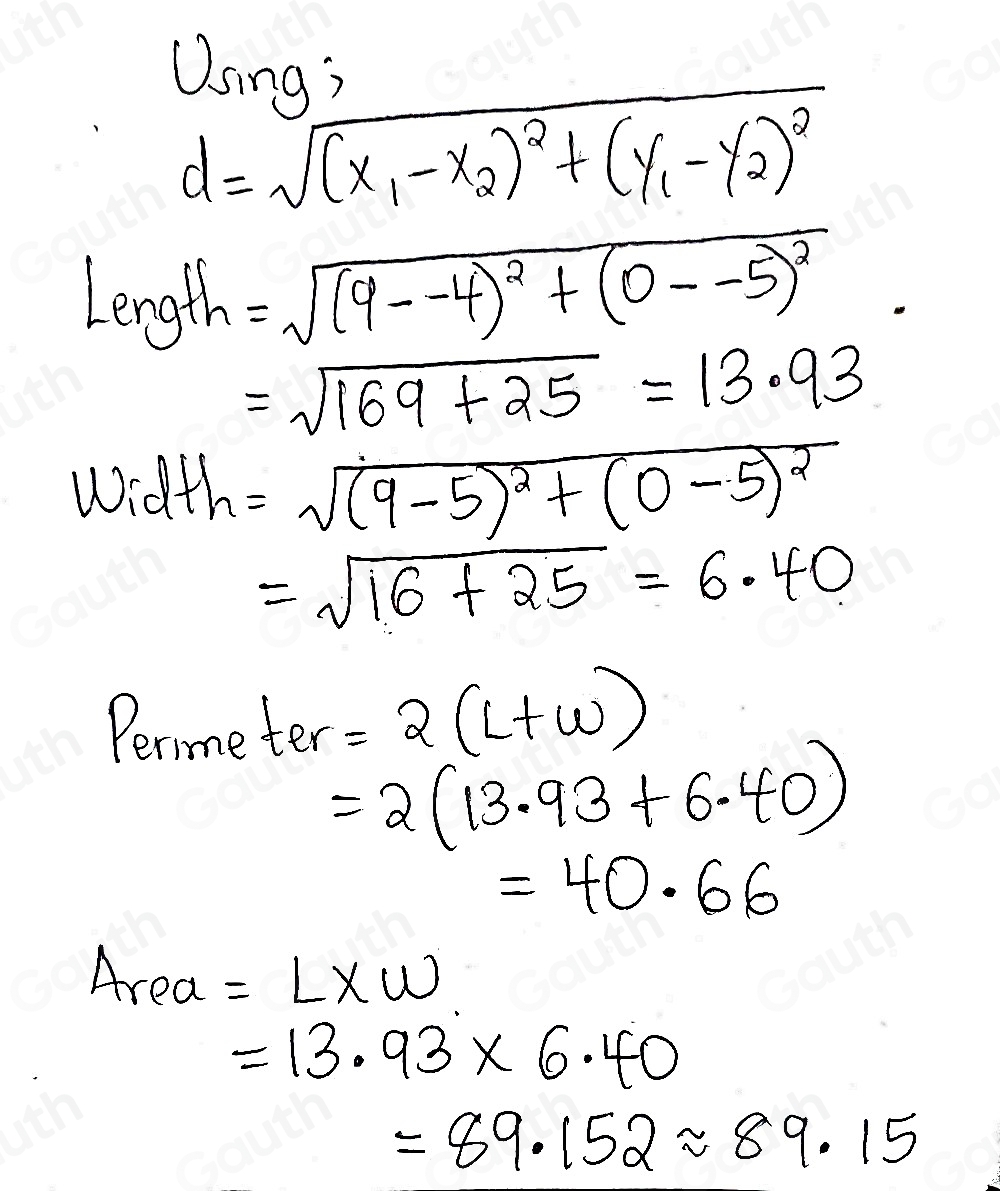 Using;
d = √(x₁ - x₂)² + (y₁ - y₂)²
Length = √(9 - -4)² + (0 - -5)²
= √169 + 25 = 13.93
Width = √(9 - 5)² + (0 - 5)²
= √16 + 25 = 6.40
Perimeter = 2(L + W)
= 2(13.93 + 6.40)
= 40.66
Area = L X W
= 13.93 x 6.40
= 89.152 ≈ 89.15